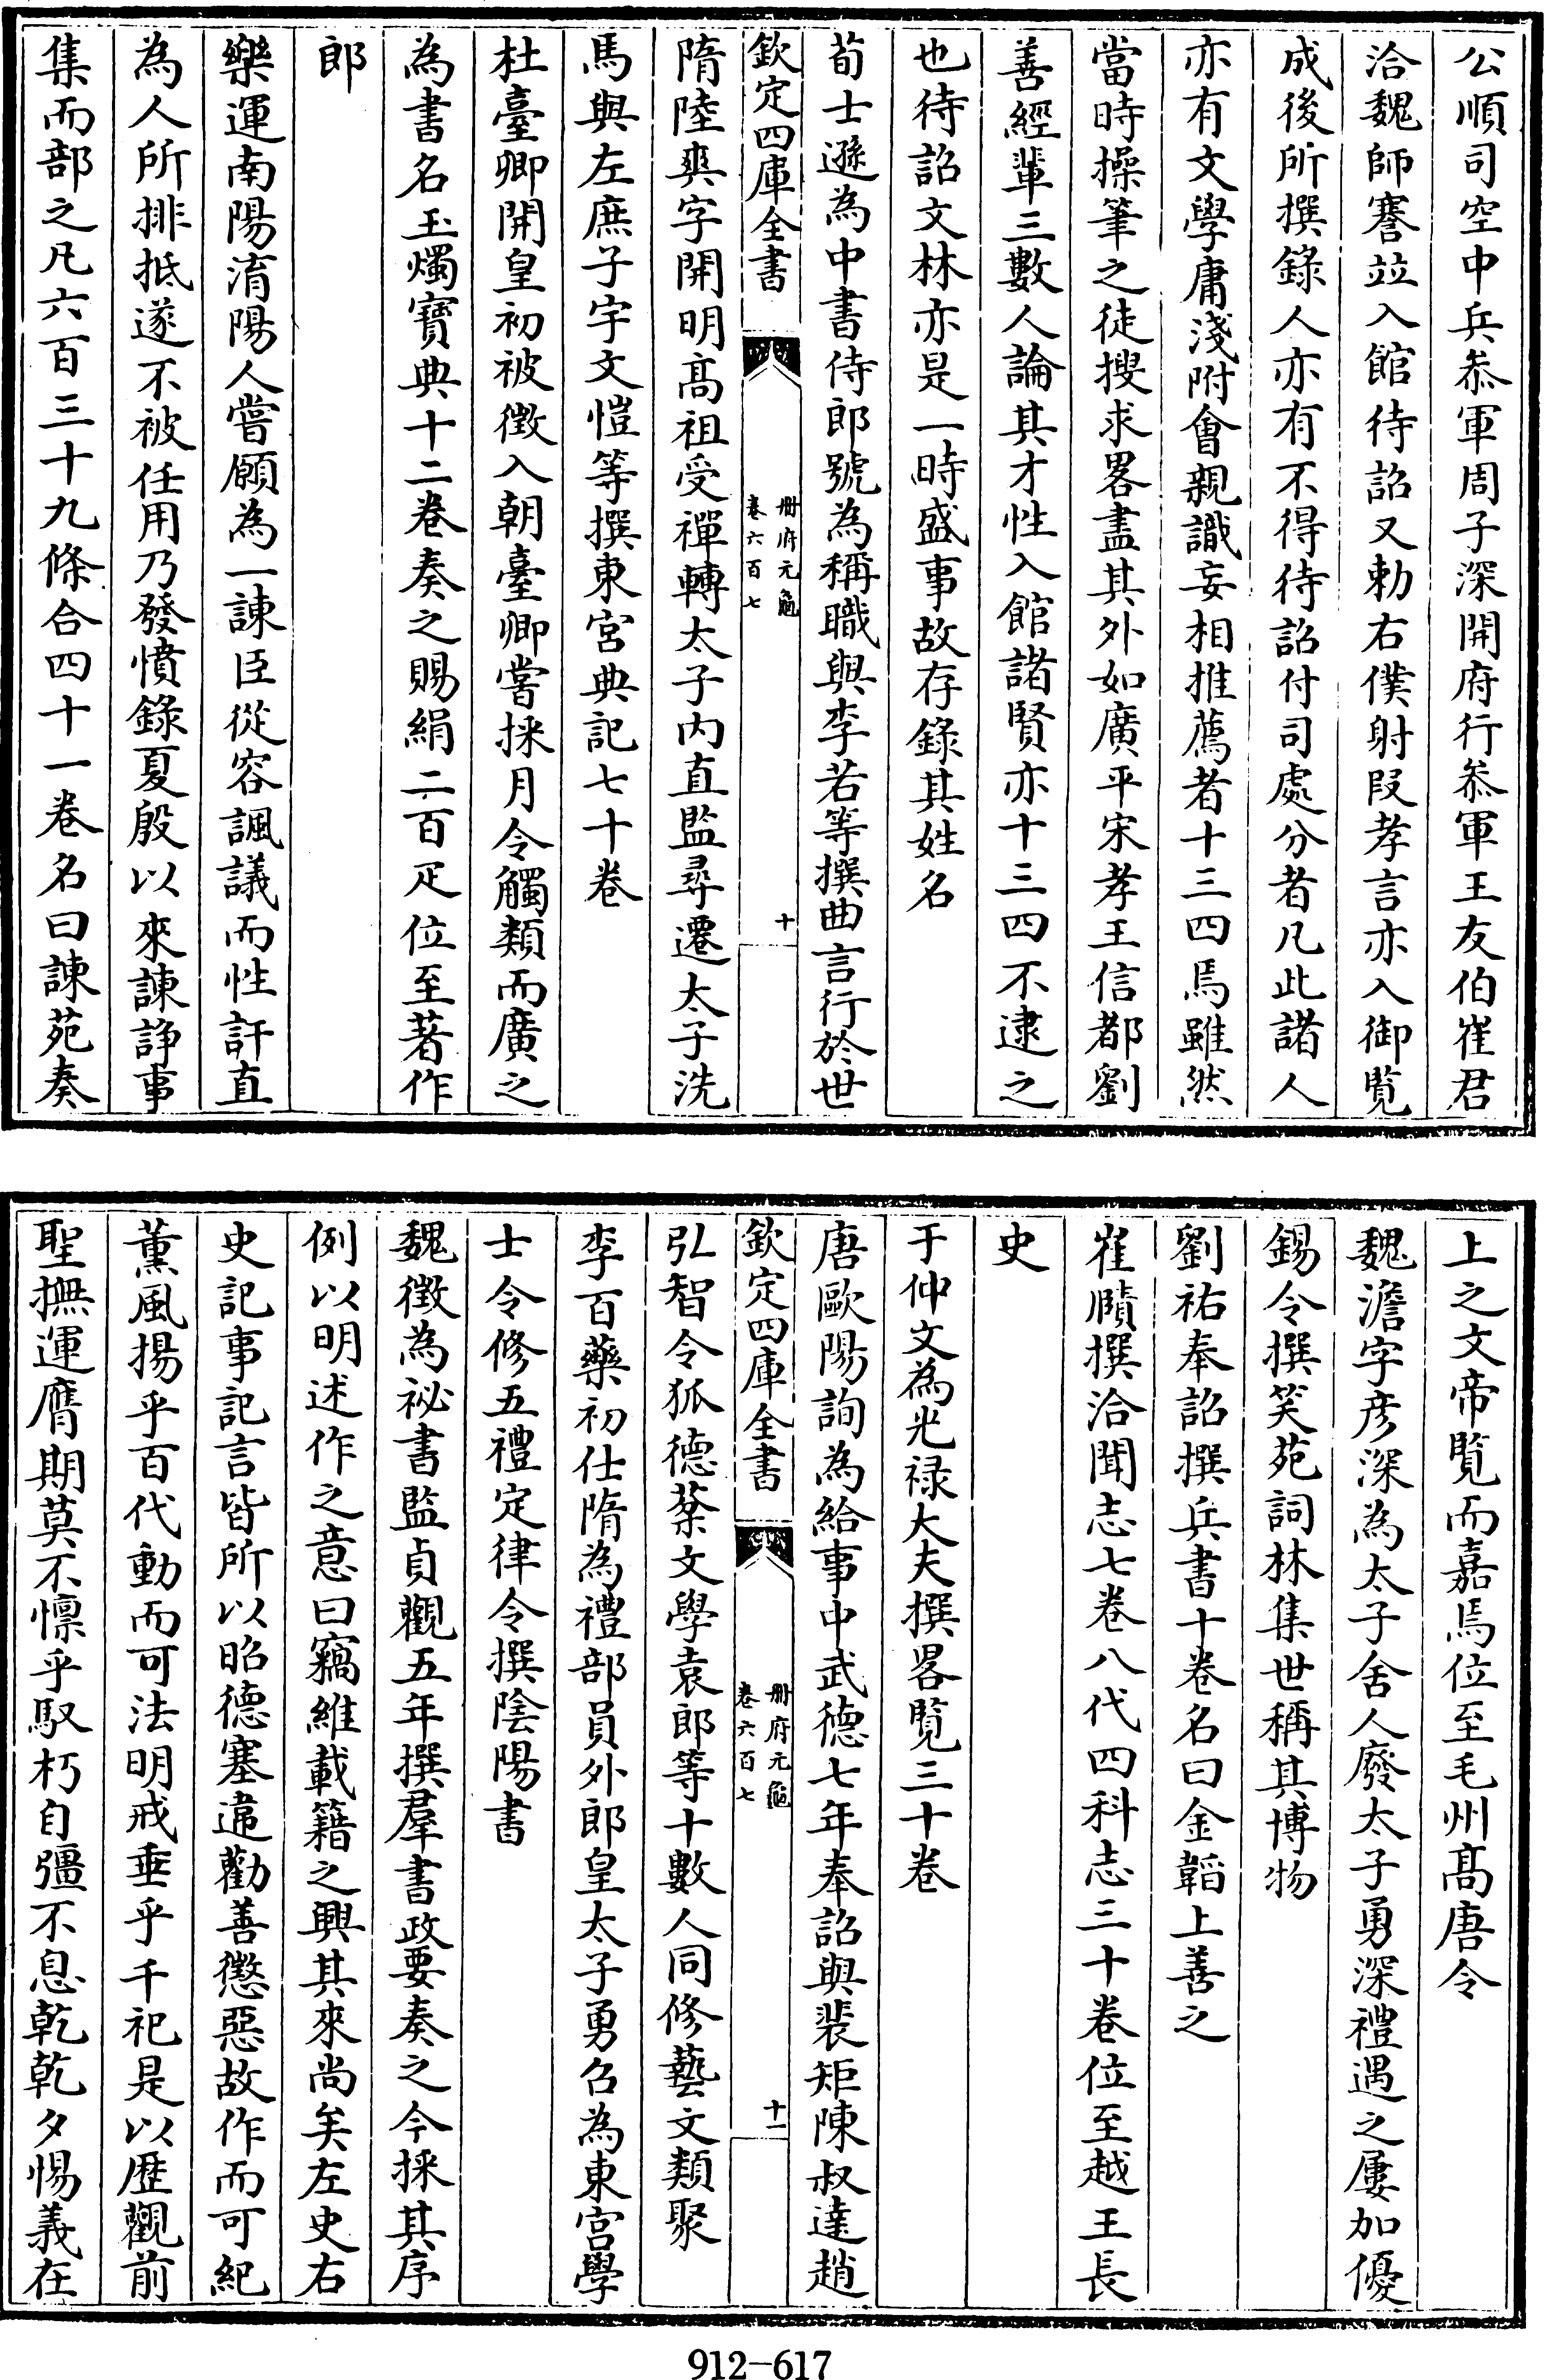 公順司空中兵叅軍周子深開府行叅軍王友伯崔君
洽魏師謇並入館待詔又勅右僕射段孝言亦入御覧
成後所撰錄人亦有不得待詔付司處分者凡此諸人
亦有文學庸淺附會親識妄相推薦者十三四焉雖然
當時操筆之徒搜求畧盡其外如廣平宋孝王信都劉
善經輩三數人論其才性入館諸賢亦十三四不逮之
也待詔文林亦是一時盛事故存錄其姓名
荀士遜為中書侍郎號為稱職與李若等撰曲言行於世
欽定四庫全書
册府元龜
卷六百七
十
隋陸爽字開明髙祖受禪轉太子内直監尋遷太子洗
馬與左庶子宇文愷等撰東宮典記七十卷
杜臺卿開皇初被徴入朝臺卿嘗採月令觸類而廣之
為書名玉燭寳典十二卷奏之賜絹二百疋位至著作
郎
樂運南陽淯陽人嘗願為一諫臣從容諷議而性訐直
為人所排抵遂不被任用乃發憤錄夏殷以來諫諍事
集而部之凡六百三十九條合四十一卷名曰諫苑奏
上之文帝覧而嘉焉位至毛州髙唐令
魏澹字彦深為太子舍人廢太子勇深禮遇之屢加優
錫令撰笑苑詞林集世稱其博物
劉祐奉詔撰兵書十卷名曰金韜上善之
崔賾撰洽聞志七卷八代四科志三十卷位至越王長
史
于仲文為光禄大夫撰畧覧三十卷
唐歐陽詢為給事中武德七年奉詔與裴矩陳叔達趙
欽定四庫全書
册府元龜
卷六百七
十一
弘智令狐德棻文學袁郎等十數人同修藝文類聚
李百藥初仕隋為禮部員外郎皇太子勇召為東宮學
士令修五禮定律令撰陰陽書
魏徴為祕書監貞觀五年撰羣書政要奏之今採其序
例以明述作之意曰竊維載籍之興其來尚矣左史右
史記事記言皆所以昭德塞違勸善懲惡故作而可紀
薫風揚乎百代動而可法明戒垂乎千祀是以歴觀前
聖撫運膺期莫不懍乎馭朽自彊不息乾乾夕惕義在
912-617